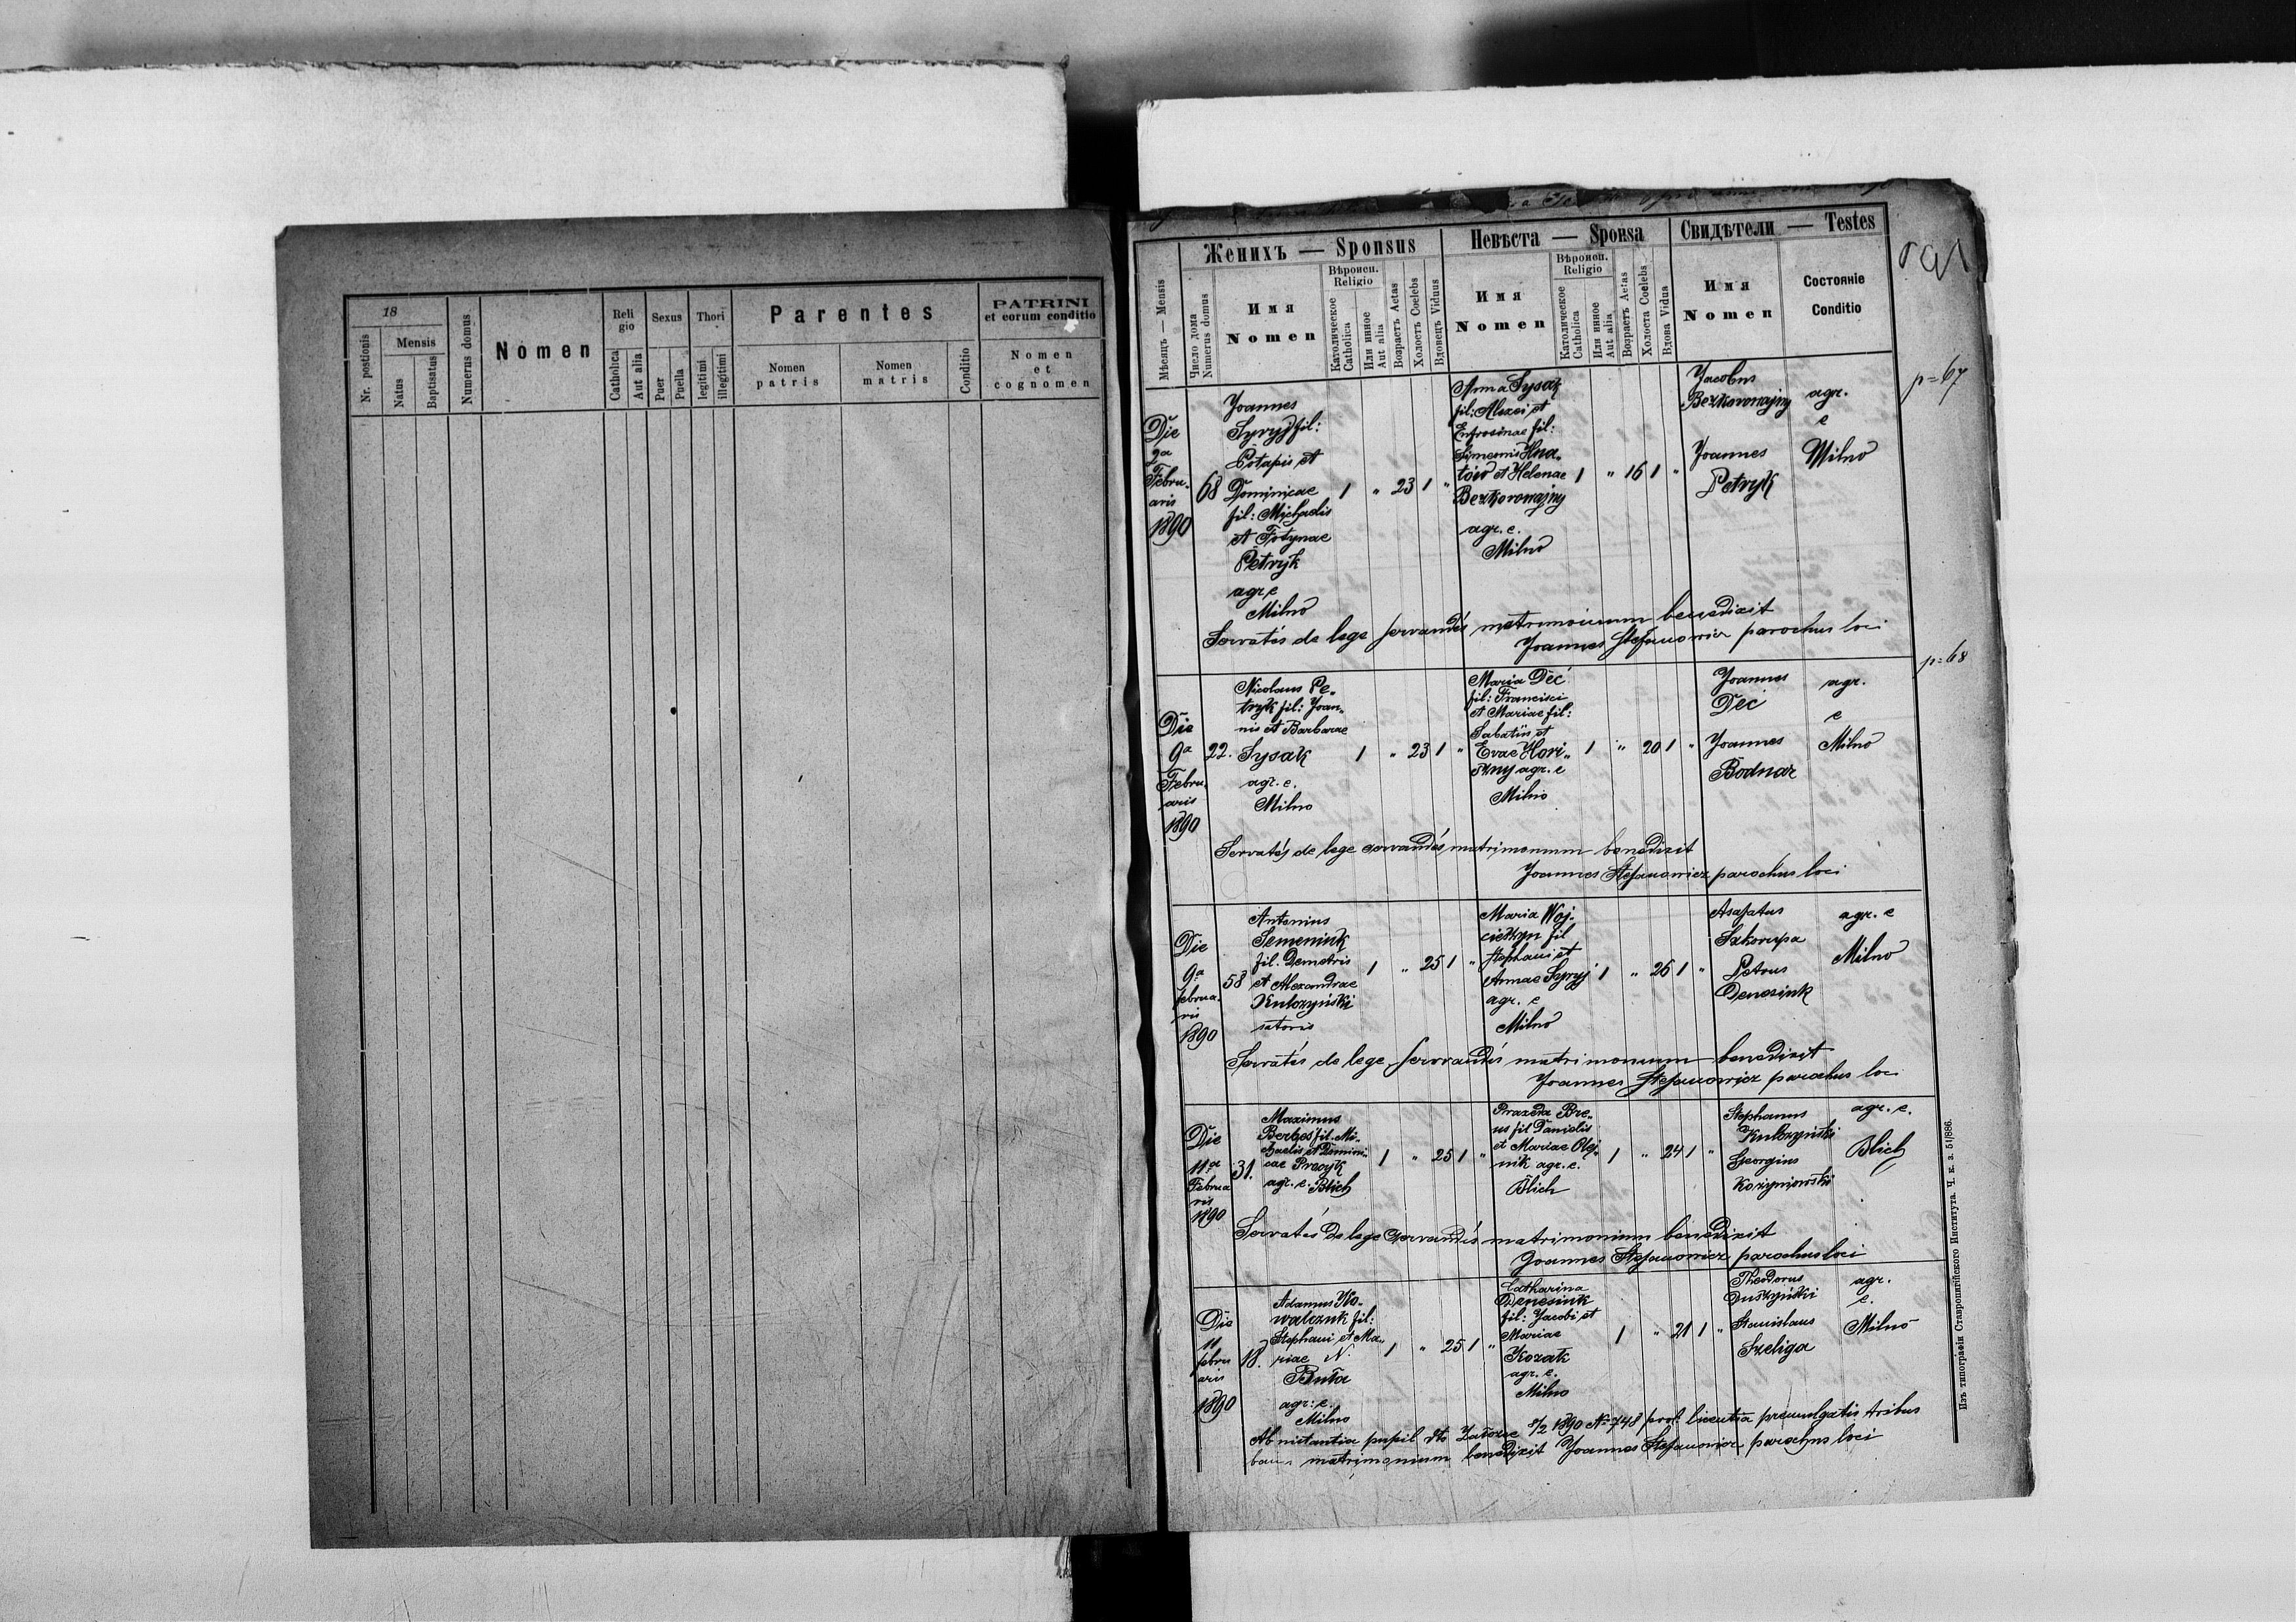 18
Nr. postionis
Mensis
Natus
Baptisatus
Numerus domus
Nomen
Reli
gio
Catholica
Aut alia
Sexus
Puer
Puella
Thori
legitimi
illegitimi
Parentes
Nomen
patris
Nomen
matris
Conditio
PATRINI
et eorum conditio
Nomen
et
cognomen
Мѣсяцъ — Mensis
Женихъ — Sponsus
Число дома
Numerus domus
Имя
Nomen
Вѣроисп.
Religio
Католическое
Catholica
Или инное
Aut alia
Возрастъ Aetas
Холостъ Coelebs
Вдовецъ Viduus
Невѣста — Sponsa
Имя
Nomen
Вѣроисп.
Religio
Католическое
Catholica
Или инное
Aut alia
Возрастъ Aetas
Холоста Coelebs
Вдова Vidua
Свидѣтели — Testes
Имя
Nomen
Состояніе
Conditio
p=67
Die
2a
Febru-
aris
1890
68
Joannes
Syryj fil:
Potapis et
Dominicae
fil: Michaelis
et Fotynae
Petryk
agr. c
Milno
1 " 23 1 "
Anna Sysak
fil: Alexei et
Enfrosinae fil:
Simeonis Hna-
tów et Helenae
Bezkorowajny
agr. c.
Milno
1 " 16 1 "
Jacobus
Bezkorowajny
Joannes
Petryk
agr.
c
Milno
Servatis de lege servandis matrimonium benedixit
Joannes Stefanowicz parochus loci
p=68
Die
9a
Febru.
aris
1890
22.
Nicolaus Pe-
tryk fil: Joan-
nis et Barbarae
Sysak
agr. c.
Milno
1 " 23 1 "
Maria Deć
fil: Francisci
et Mariae fil:
Sabatiis et
Evae Hori-
szny agr. c
Milno
1 " 20 1 "
Joannes
Deć
Joannes
Bodnar
agr.
c
Milno
Servatis de lege servandis matrimonium benedixit
Joannes Stefanowicz parochus loci
Die
9a
februa.
ris
1890
58
Antonius
Semeniuk
fil. Demetris
et Alexandrae
Kulczyński
1 " 25 1 "
Maria Woj-
cieszyn fil
Stephani et
Annae Syryj
agr. c
Milno
1 " 26 1 "
Asafatus
Szkorupa
Petrus
Denesiuk
agr. c
Milno
Servatis de lege servandis matrimonium benedixit
Joannes Stefanowicz parochus loci
Die
11a
Februa
ris
1890
31.
Maximus
fil. Mi-
chaelis et Domini-
cae
agr. c. Blich
1 " 25 1 "
Praxeda Bre-
us fil Danielis
et Mariae Olej-
nik agr. c.
Blich
1 " 24 1 "
Stephanus
Kulczyński
Georgius
Korzyniowski
agr. c.
Blich
Servatis de lege servandis matrimonium benedixit
Joannes Stefanowicz parochus loci
Die
11
febru
aris
1890
18.
Adamus Ko-
walczuk fil:
Stephani et Ma-
riae N.
Buta
agr: c.
Milno
1 " 25 1 "
Catharina
Denesiuk
fil: Jacobi et
Mariae
Kozak
agr. c.
Milno
1 " 21 1 "
Theodorus
Duszyński
Stanislaus
Szeliga
agr.
c.
Milno
Ab instantia pupil dto Załoźce 8/2 1890 No 748 licentia promulgatis tribus
matrimonium benedixit Joannes Stefanowicz parochus loci
Изъ типографіи Ставропигійского Института. Ч. к. з. 51/886.